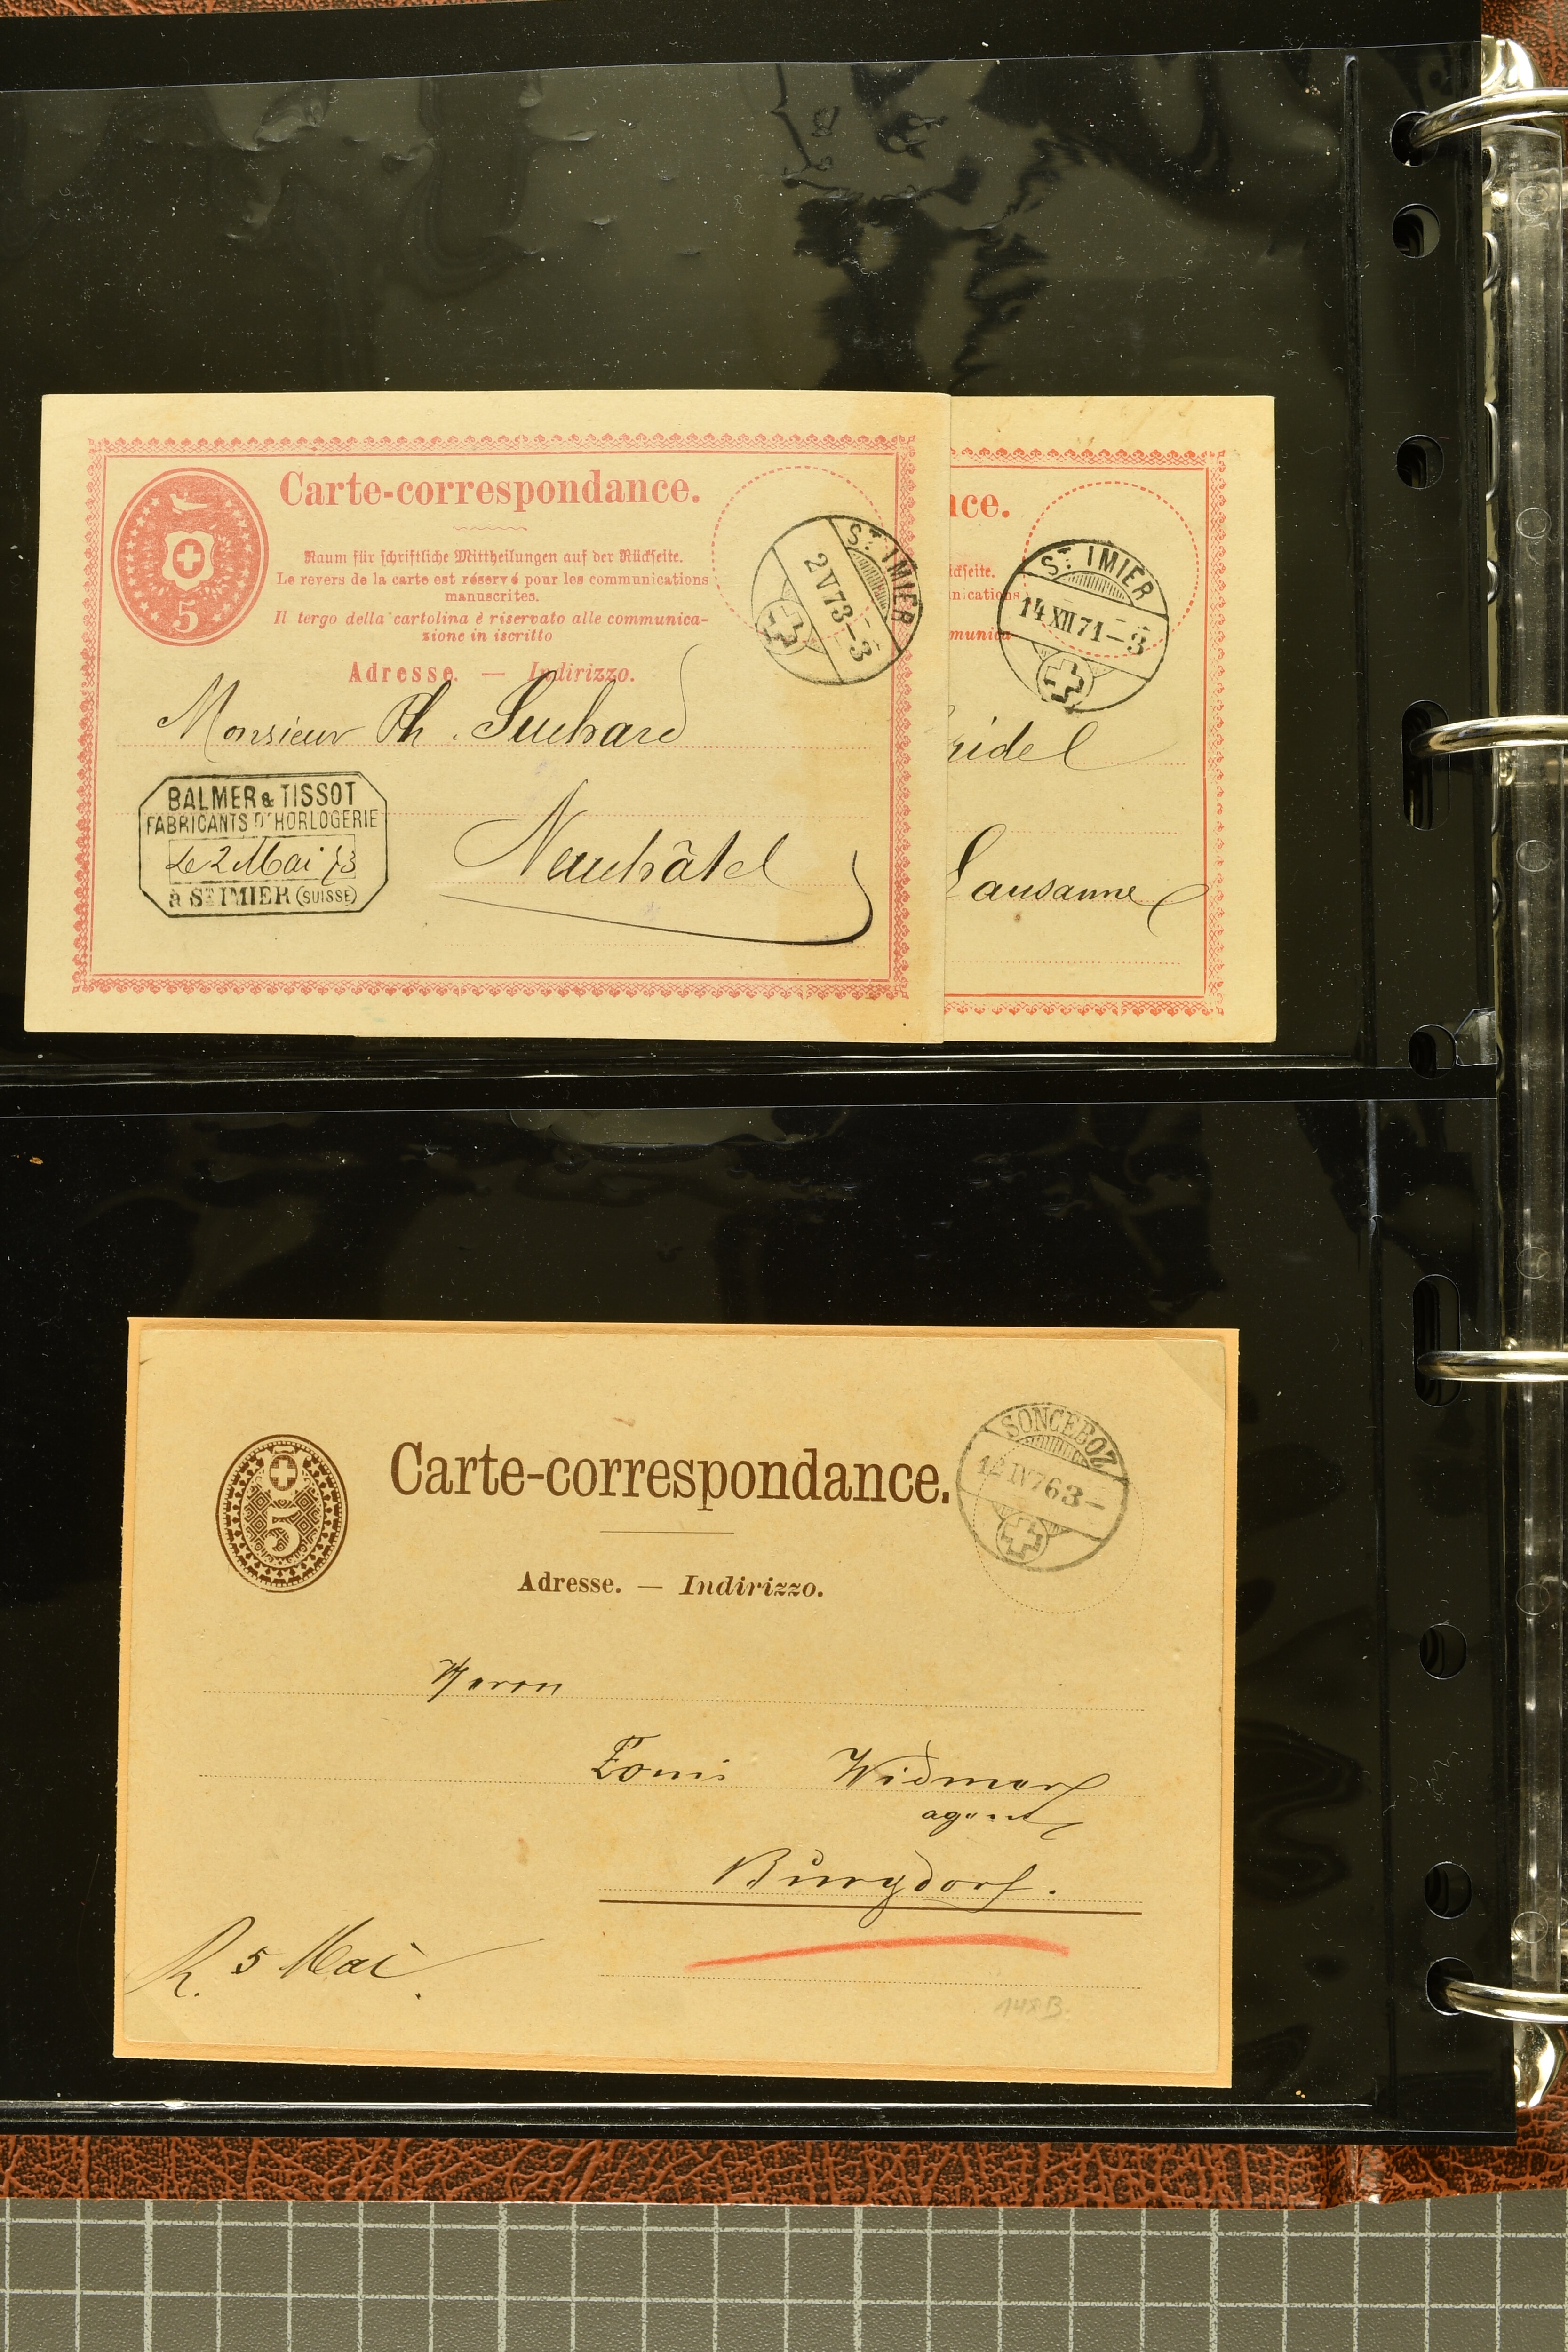 Carte-correspondance.
5
Raum für schriftliche Mittheilungen auf der Rückseite.
Le revers de la carte est réservé pour les communications
manuscrites.
Il tergo della cartolina è riservato alle communica-
zione in iscritto
Adresse. — Indirizzo.
ST IMIER
2 V 73-3
Monsieur Ph. Suchard
Neuchâtel
BALMER & TISSOT
FABRICANTS D'HORLOGERIE
Le 2 Mai 73
à ST IMIER (SUISSE)
nce.
ückseite.
nications
munica
ST IMIER
14 XII 71-3
ridel
Lausanne
Carte-correspondance.
5
Adresse. — Indirizzo.
SONCEBOZ
12 IV 76 3-
Herrn
Louis Widmer
agent
Burgdorf.
R. 5 Mai
148 B.